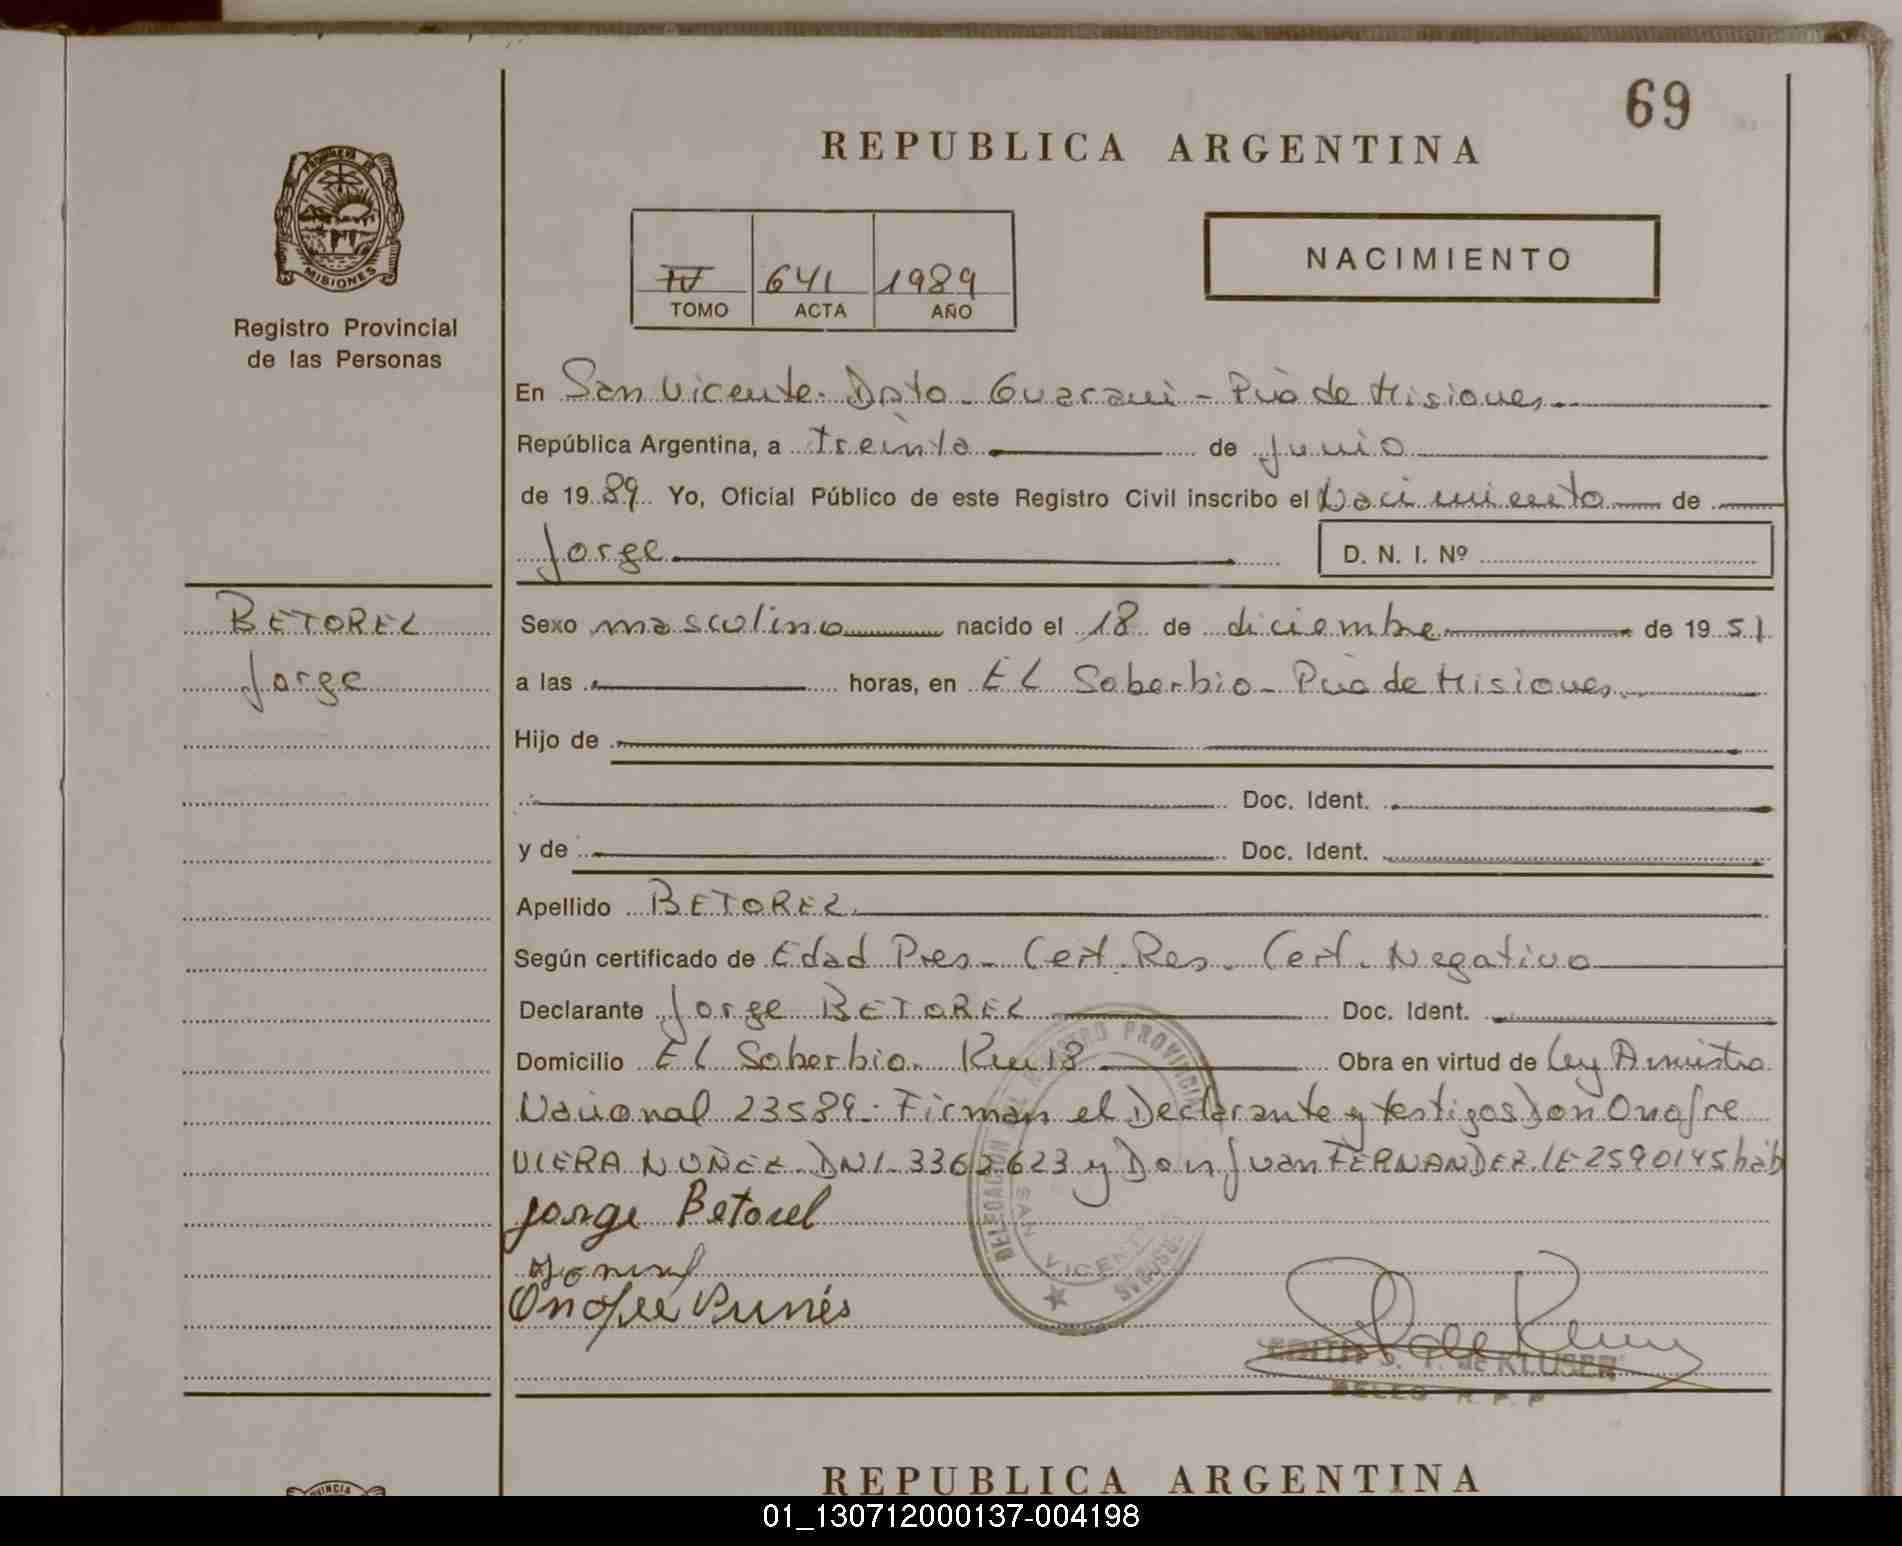 69
REPUBLICA ARGENTINA
PROVINCIA DE
MISIONES
Registro Provincial
de las Personas
IV 641 1989
TOMO ACTA AÑO
NACIMIENTO
En San Vicente. Dpto. Guarani - Pcia de Misiones
República Argentina, a treinta de junio
de 1989 Yo, Oficial Público de este Registro Civil inscribo el Nacimiento de
Jorge D. N. I. Nº
BETOREL
Jorge
Sexo masculino nacido el 18 de diciembre de 1951
a las horas, en EL Soberbio - Pcia de Misiones
Hijo de
Doc. Ident.
y de Doc. Ident.
Apellido BETOREL
Según certificado de Edad Pres. Cert. Res. Cert. Negativo
Declarante Jorge BETOREL Doc. Ident.
Domicilio EL Soberbio. Km 18 Obra en virtud de Ley Amnistia
Nacional 23589. Firman el Declarante y testigos Don Onofre
VIERA NUÑEZ. DNI. 3362623 y Don Juan FERNANDEZ. LE 2590145 hab
Jorge Betorel
Onofre
DELEGACION REGISTRO PROVINCIAL
SAN VICENTE
MISIONES
EDITH S. T. de KLUSER
DELEG R. P. P
REPUBLICA ARGENTINA
01_130712000137-004198